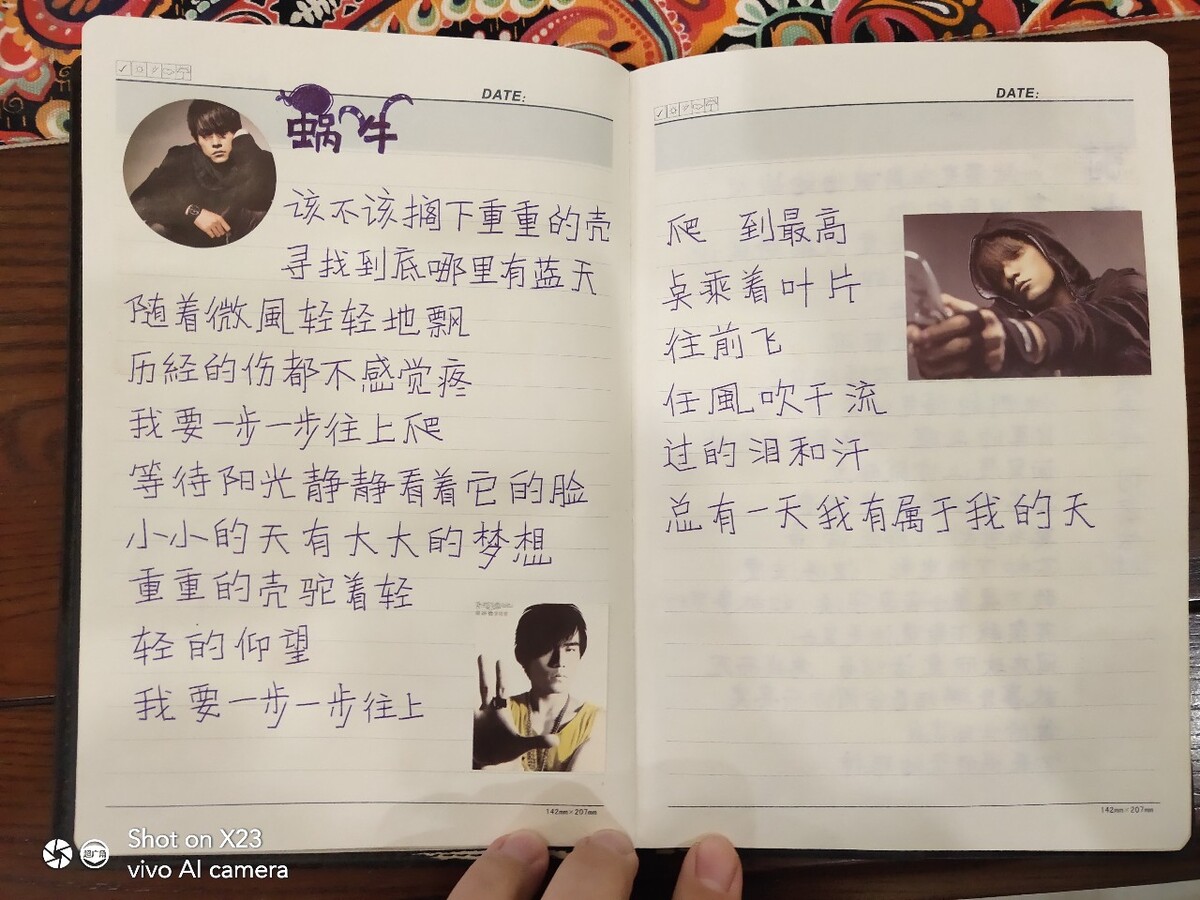 DATE:
蜗牛
该不该搁下重重的壳
寻找到底哪里有蓝天
随着微風轻轻地飘
历経的伤都不感觉疼
我要一步一步往上爬
等待阳光静静看着它的脸
小小的天有大大的梦想
重重的壳驼着轻
轻的仰望
我要一步一步往上
142mm×207mm
DATE:
爬 到最高
点乘着叶片
往前飞
任風吹干流
过的泪和汗
总有一天我有属于我的天
142mm×207mm
Shot on X23
vivo AI camera
超广角